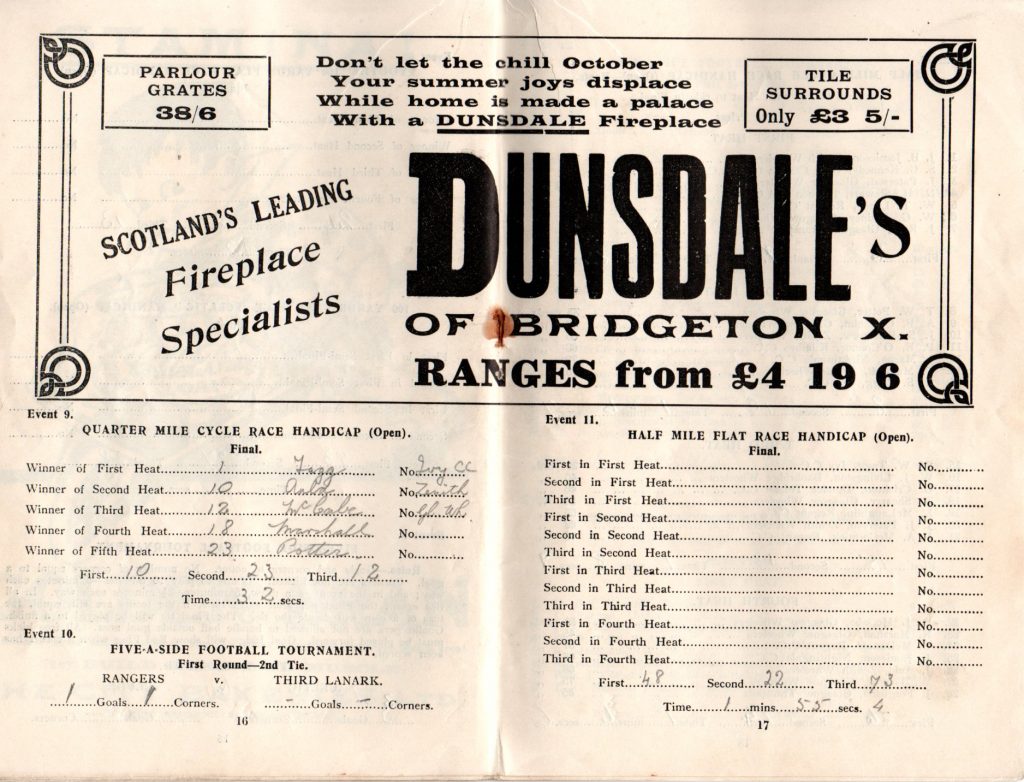 PARLOUR
GRATES
38/6
Don't let the chill October
Your summer joys displace
While home is made a palace
With a DUNSDALE Fireplace
TILE
SURROUNDS
Only £3 5/-
SCOTLAND'S LEADING
Fireplace
Specialists
DUNSDALE'S
OF BRIDGETON X.
RANGES from £4 19 6
Event 9.
QUARTER MILE CYCLE RACE HANDICAP (Open).
Final.
Winner of First Heat......1......Fagg......No...Ivy CC
Winner of Second Heat......10......No...Zenith
Winner of Third Heat......12......McCabe......No...Gl. Wh.
Winner of Fourth Heat......18......Marshall......No.........
Winner of Fifth Heat......23......Potter......No.........
First...10... Second...23... Third...12...
Time...32...secs.
Event 10.
FIVE-A-SIDE FOOTBALL TOURNAMENT.
First Round—2nd Tie.
RANGERS v. THIRD LANARK.
...1...Goals...1...Corners. ...–...Goals...–...Corners.
16
Event 11.
HALF MILE FLAT RACE HANDICAP (Open).
Final.
First in First Heat.........No.........
Second in First Heat.........No.........
Third in First Heat.........No.........
First in Second Heat.........No.........
Second in Second Heat.........No.........
Third in Second Heat.........No.........
First in Third Heat.........No.........
Second in Third Heat.........No.........
Third in Third Heat.........No.........
First in Fourth Heat.........No.........
Second in Fourth Heat.........No.........
Third in Fourth Heat.........No.........
First...48... Second...22... Third...73...
Time...1...mins...55...secs. 4
17